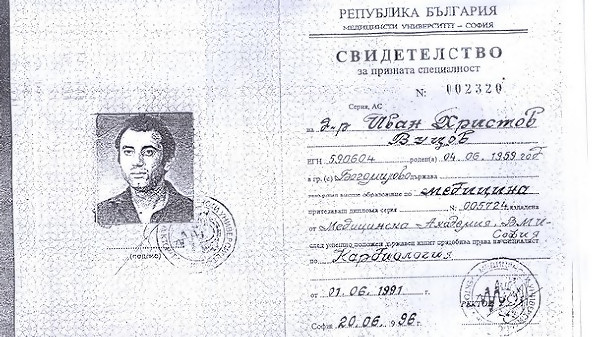 РЕПУБЛИКА БЪЛГАРИЯ
МЕДИЦИНСКИ УНИВЕРСИТЕТ – СОФИЯ
СВИДЕТЕЛСТВО
за призната специалност
№: 002320
Серия, АС
на д-р Иван Христов
Вицов
ЕГН 590604 роден(а) 04.06.1959 год
в гр. (с) Богомилово държава
завършил висше образование по медицина
притежаващ диплома серия № 005724 издадена
от Медицинска Академия, ВМИ-
София
след успешно положен държавен изпит придобива права на специалист
по Кардиология
от 01.06.1991 г.
РЕКТОР
София 20.06.96 г.
(подпис)